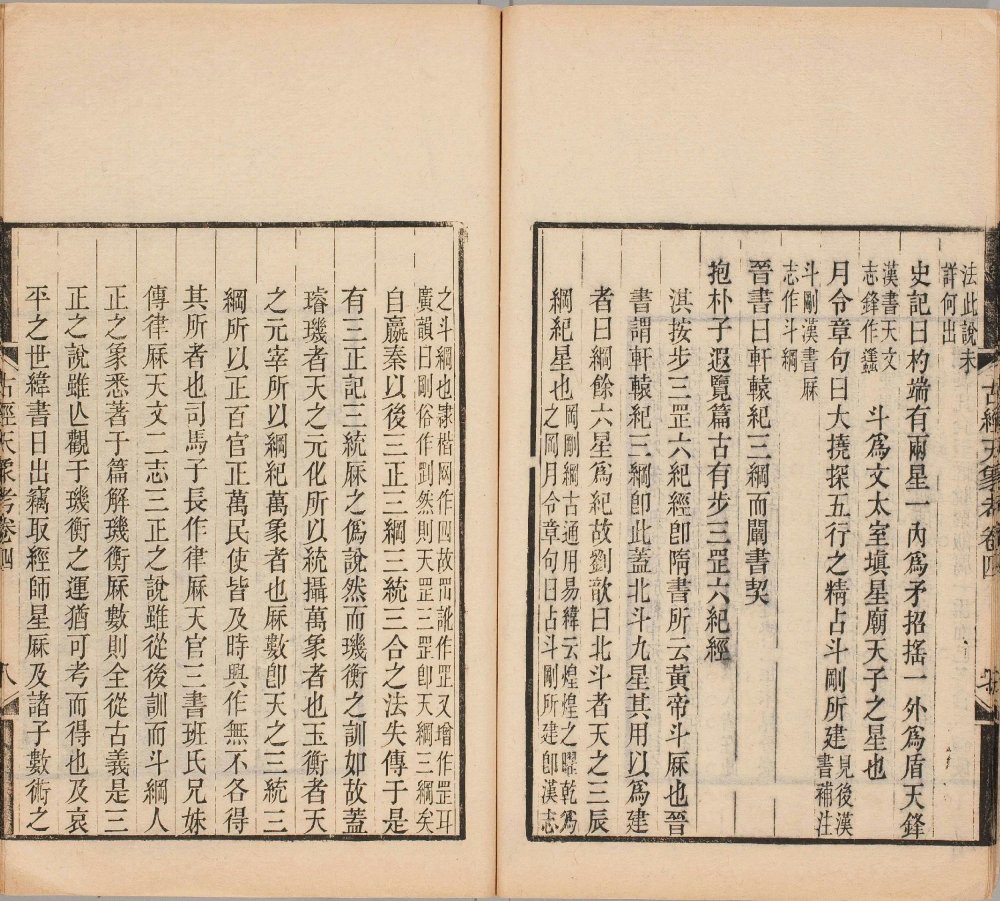 法此說未
詳何出
史記曰杓端有兩星一內爲矛招搖一外爲盾天鋒
漢書天文
志鋒作蠭
斗爲文太室塡星廟天子之星也
月令章句曰大撓探五行之精占斗剛所建
見後漢
書補注
斗剛漢書厤
志作斗綱
晉書曰軒轅紀三綱而闡書契
抱朴子遐覽篇古有步三罡六紀經
淇按步三罡六紀經卽隋書所云黃帝斗厤也晉
書謂軒轅紀三綱卽此蓋北斗九星其用以爲建
者曰綱餘六星爲紀故劉歆曰北斗者天之三辰
綱紀星也
岡剛綱古通用易緯云煌煌之曜乾爲
之岡月令章句曰占斗剛所建卽漢志
古經天象考卷四
之斗綱也隸楷岡作四故訛作罡又增作罡耳
廣韻曰剛俗作𠛬然則天罡三罡卽天綱三綱矣
自嬴秦以後三正三綱三統三合之法失傳于是
有三正記三統厤之僞說然而璣衡之訓如故蓋
璿璣者天之元化所以統攝萬象者也玉衡者天
之元宰所以綱紀萬象者也厤數卽天之三統三
綱所以正百官正萬民使皆及時興作無不各得
其所者也司馬子長作律厤天官三書班氏兄妹
傳律厤天文二志三正之說雖從後訓而斗綱人
正之象悉著于篇解璣衡厤數則全從古義是三
正之說雖亾觀于璣衡之運猶可考而得也及哀
平之世緯書日出竊取經師星厤及諸子數術之
古經天象考卷四
八